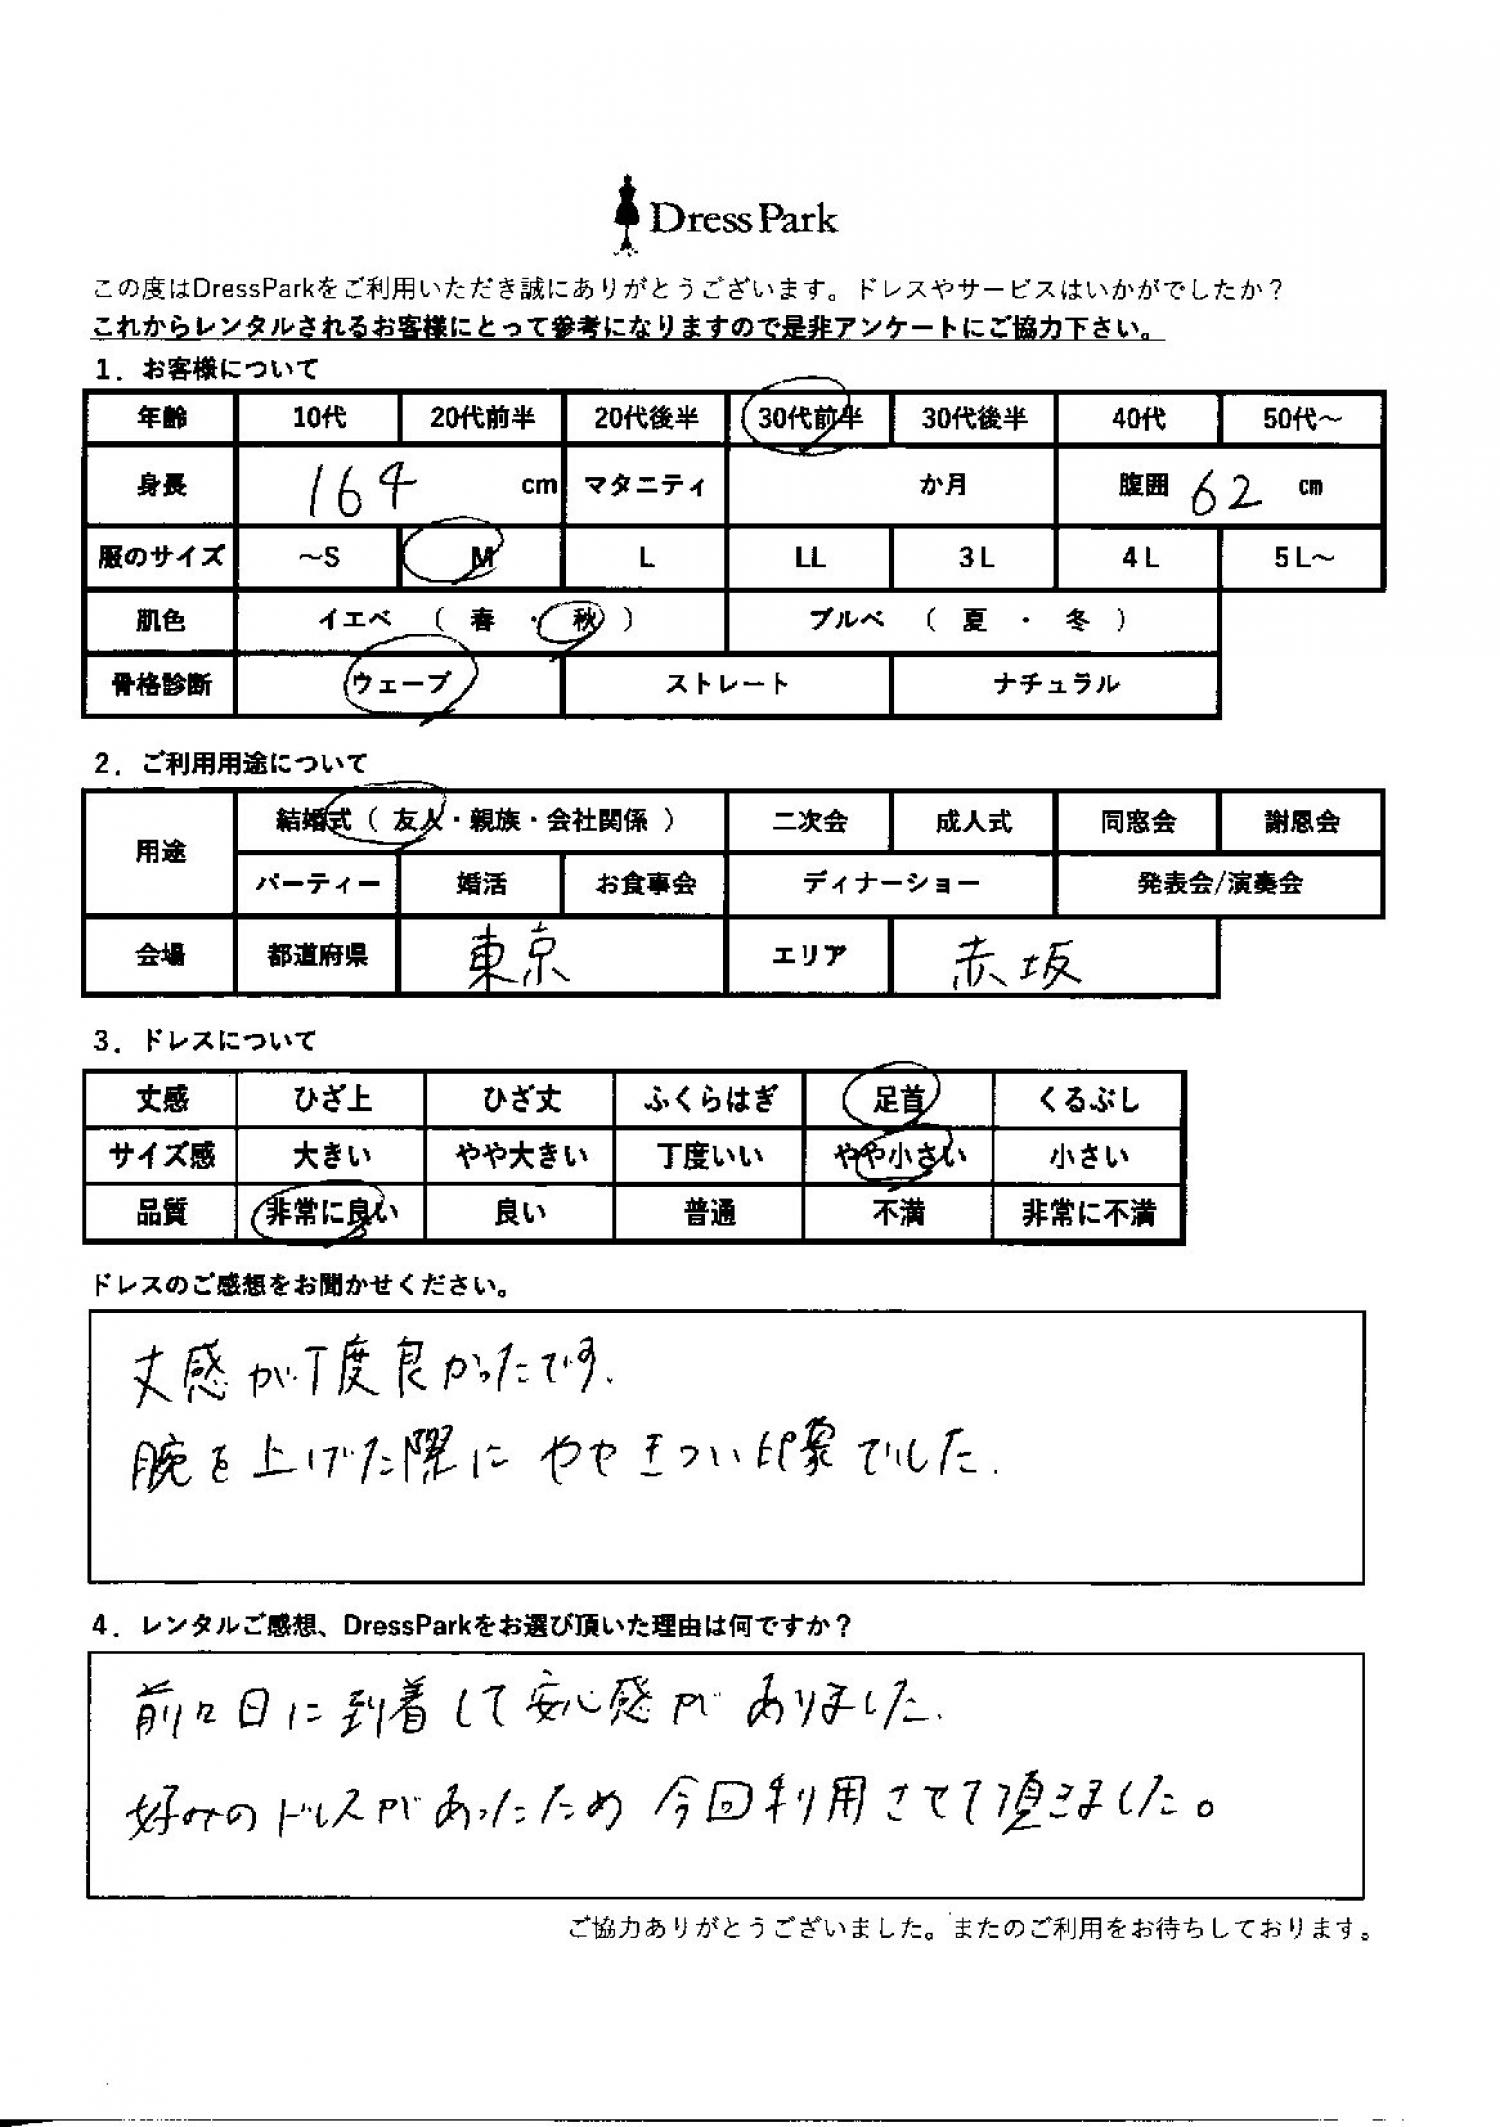 Dress Park
この度はDressParkをご利用いただき誠にありがとうございます。ドレスやサービスはいかがでしたか？
これからレンタルされるお客様にとって参考になりますので是非アンケートにご協力下さい。
1．お客様について
年齢 10代 20代前半 20代後半 30代前半 30代後半 40代 50代～
身長 164 cm マタニティ か月 腹囲 62 cm
服のサイズ ～S M L LL 3L 4L 5L～
肌色 イエベ （ 春 ・ 秋 ） ブルベ （ 夏 ・ 冬 ）
骨格診断 ウェーブ ストレート ナチュラル
2．ご利用用途について
用途 結婚式（ 友人・親族・会社関係 ） 二次会 成人式 同窓会 謝恩会
パーティー 婚活 お食事会 ディナーショー 発表会/演奏会
会場 都道府県 東京 エリア 赤坂
3．ドレスについて
丈感 ひざ上 ひざ丈 ふくらはぎ 足首 くるぶし
サイズ感 大きい やや大きい 丁度いい やや小さい 小さい
品質 非常に良い 良い 普通 不満 非常に不満
ドレスのご感想をお聞かせください。
丈感が丁度良かったです.
腕を上げた際に ややきつい印象でした.
4．レンタルご感想、DressParkをお選び頂いた理由は何ですか？
前々日に到着して安心感がありました.
好みのドレスがあったため 今回利用させて頂きました。
ご協力ありがとうございました。またのご利用をお待ちしております。